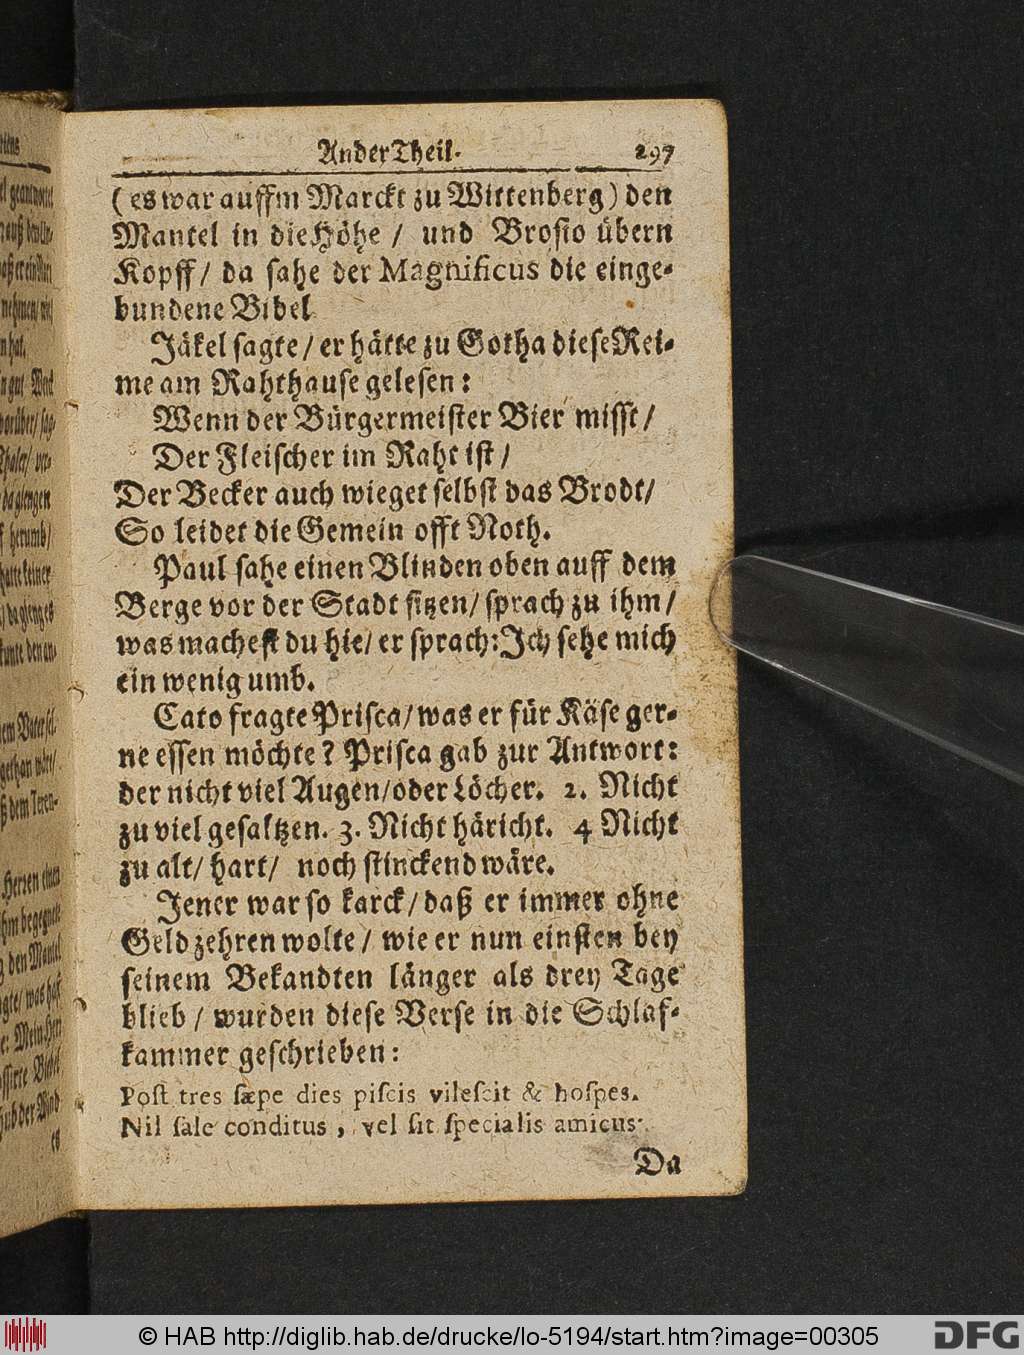 Ander Theil. 297
(es war auffm Marckt zu Wittenberg) den
Mantel in die Höhe / und Brosio übern
Kopff / da sahe der Magnificus die einge-
bundene Bibel
Jäkel sagte / er hätte zu Gotha diese Rei-
me am Rahthause gelesen:
Wenn der Bürgermeister Bier misst /
Der Fleischer im Raht ist /
Der Becker auch wieget selbst das Brodt /
So leidet die Gemein offt Noth.
Paul sahe einen Blinden oben auff dem
Berge vor der Stadt sitzen / sprach zu ihm /
was machest du hie / er sprach: Ich sehe mich
ein wenig umb.
Cato fragte Prisca / was er für Käse ger-
ne essen möchte? Prisca gab zur Antwort:
der nicht viel Augen / oder Löcher. 2. Nicht
zu viel gesaltzen. 3. Nicht häricht. 4 Nicht
zu alt / hart / noch stinckend wäre.
Jener war so karck / daß er immer ohne
Geld zehren wolte / wie er nun einsten bey
seinem Bekandten länger als drey Tage
blieb / wurden diese Verse in die Schlaf-
kammer geschrieben:
Post tres sæpe dies piscis vilescit & hospes.
Nil sale conditus, vel sit specialis amicus.
Da
© HAB http://diglib.hab.de/drucke/lo-5194/start.htm?image=00305
DFG